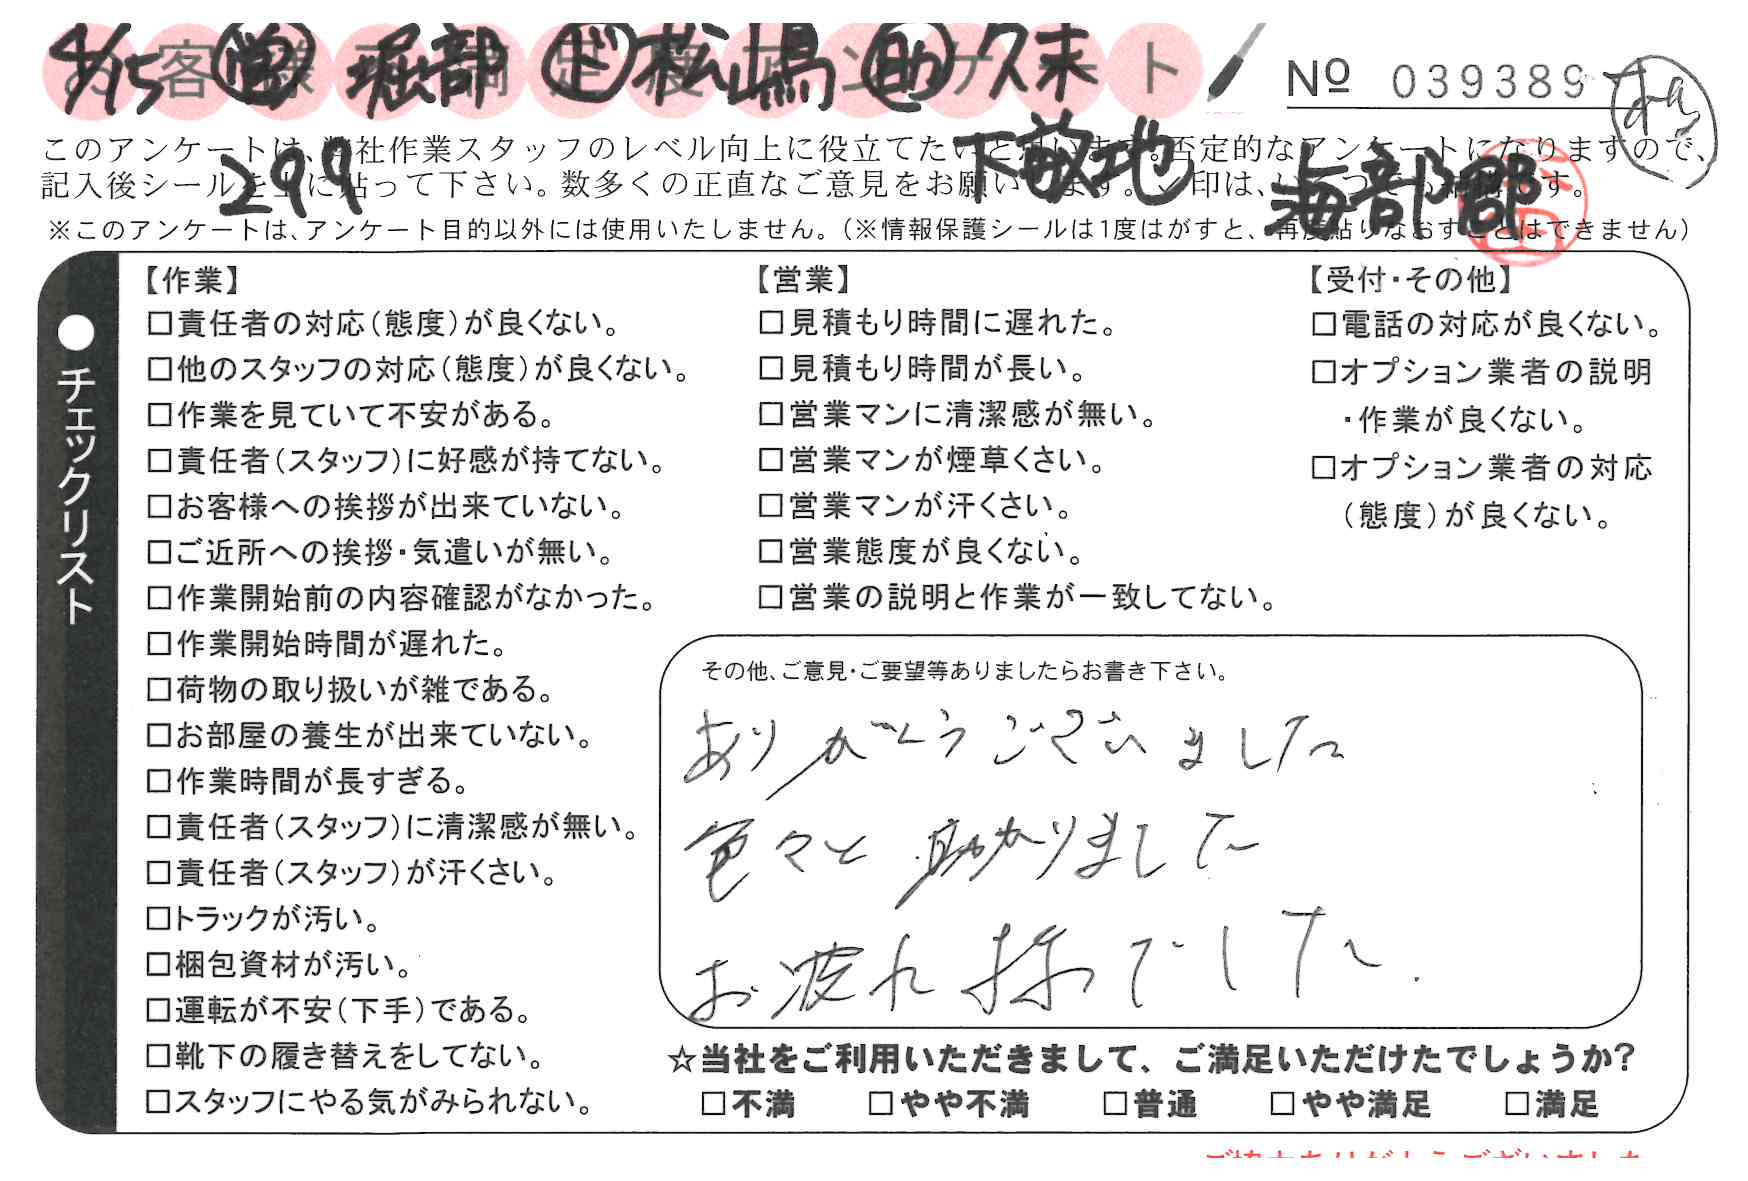 4/15 営 堀部 ド 松嶋 助 久末
お客様 満足度アンケート
No 039389
299 下敷地 海部郡
このアンケートは、弊社作業スタッフのレベル向上に役立てたいと思います。否定的なアンケートになりますので、
記入後シールを上に貼って下さい。数多くの正直なご意見をお願いします。✓印は、いくつでも結構です。
※このアンケートは、アンケート目的以外には使用いたしません。(※情報保護シールは1度はがすと、再度貼りなおすことはできません)
●チェックリスト
【作業】
□責任者の対応(態度)が良くない。
□他のスタッフの対応(態度)が良くない。
□作業を見ていて不安がある。
□責任者(スタッフ)に好感が持てない。
□お客様への挨拶が出来ていない。
□ご近所への挨拶・気遣いが無い。
□作業開始前の内容確認がなかった。
□作業開始時間が遅れた。
□荷物の取り扱いが雑である。
□お部屋の養生が出来ていない。
□作業時間が長すぎる。
□責任者(スタッフ)に清潔感が無い。
□責任者(スタッフ)が汗くさい。
□トラックが汚い。
□梱包資材が汚い。
□運転が不安(下手)である。
□靴下の履き替えをしてない。
□スタッフにやる気がみられない。
【営業】
□見積もり時間に遅れた。
□見積もり時間が長い。
□営業マンに清潔感が無い。
□営業マンが煙草くさい。
□営業マンが汗くさい。
□営業態度が良くない。
□営業の説明と作業が一致してない。
【受付・その他】
□電話の対応が良くない。
□オプション業者の説明
・作業が良くない。
□オプション業者の対応
(態度)が良くない。
その他、ご意見・ご要望等ありましたらお書き下さい。
ありがとうございました
色々と助かりました
お疲れ様でした.
☆当社をご利用いただきまして、ご満足いただけたでしょうか?
□不満 □やや不満 □普通 □やや満足 □満足
ご協力ありがとうございました